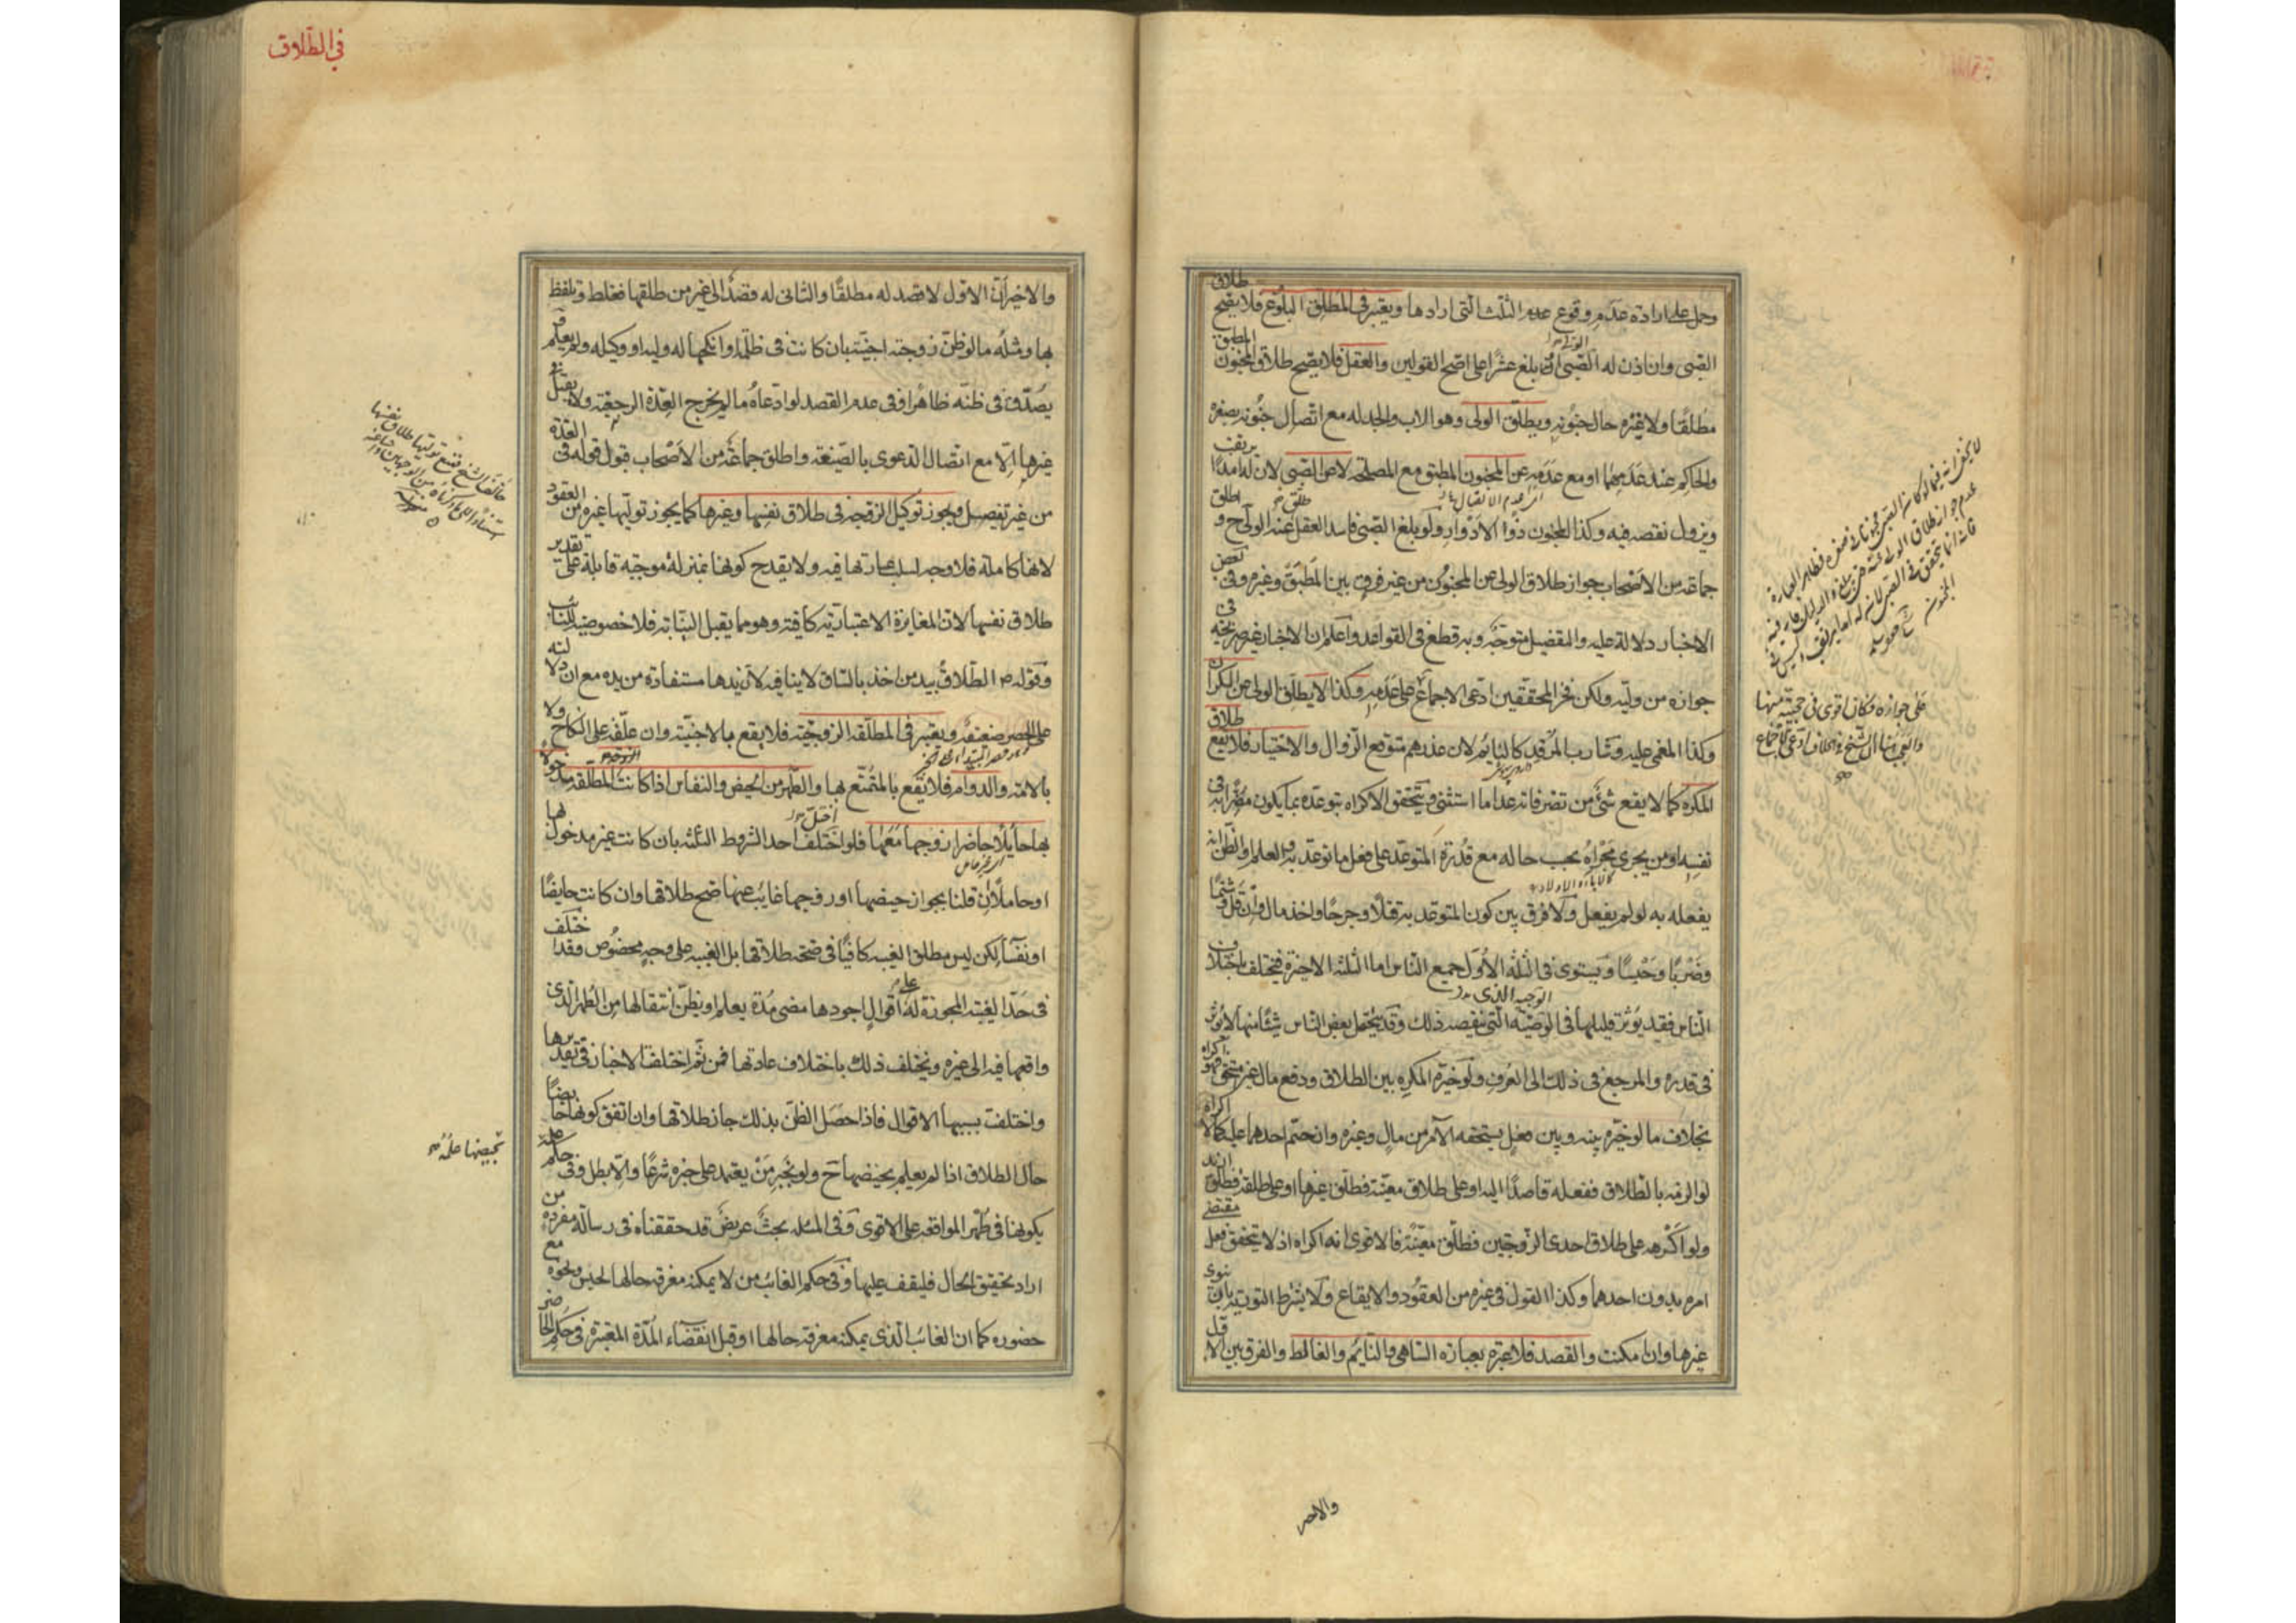 وحمل على ارادة عدم وقوع عدم الثلث التي ارادها ويعتبر في المطلق البلوغ فلا يصح طلاق
الصبي وان اذن له الولي او بلغ عشرا على اصح القولين والعقل فلا يصح طلاق المجنون المطبق
مطلقا ولا غيره حال جنونه ويطلق الولي وهو الاب والجد له مع اتصال جنونه بصغره
والحاكم عند عدمهما او مع عدمه عن المجنون المطبق مع المصلحة لا عن الصبي لان له امدا يرتقب
ويزول نقصه فيه وكذا المجنون ذوا الادوار ولو بلغ الصبي فاسد العقل طلق عنه الولي ح و اطلق
جماعة من الاصحاب جواز طلاق الولي عن المجنون من غير فرق بين المطبق وغيره وفي بعض
الاخبار دلالة عليه والتفصيل متوجه وبه قطع في القواعد واعلم ان الاخبار غير صريحة في
جوازه من وليه ولكن فخر المحققين ادعى الاجماع على عدمه وكذا لا يطلق الولي عن السكران
وكذا المغمى عليه وشارب المرقد كالنايم لان عذرهم متوقع الزوال والاختيار فلا يقع طلاق
المكره كما لا يقع شئ من تصرفاته عدا ما استثني ويتحقق الاكراه بتوعده بما يكون مضرا به في
نفسه او من يجري مجراه بحسب حاله مع قدرة المتوعد على فعل ما توعد به والعلم او الظن انه
يفعله به لو لم يفعل ولا فرق بين كون المتوعد به قتلا وجرحا واخذ مال وان قل وشتما
وضربا وحبسا ويستوي في الثلثة الاول جميع الناس اما الثلثة الاخيرة فتختلف باختلاف
الناس فقد يؤثر قليلها في الوجيه الذي تنقصه ذلك وقد يحتمل بعض الناس شيئا منها لا يؤثر
في قدره والمرجع في ذلك الى العرف ولو خيره المكره بين الطلاق ودفع مال غير مستحق فهو اكراه
بخلاف ما لو خيره بينه وبين فعل يستحقه الآمر من مال وغيره وان حتم احدهما عليه كما لا اكراه
لو الزمه بالطلاق ففعله قاصدا اليه او على طلاق معينة فطلق غيرها او على طلقة فطلق ازيد
ولو اكرهه على طلاق احدى الزوجتين فطلق معينة فالاقوى انه اكراه اذ لا يتحقق فعل مقتضى
امره بدون احدهما وكذا القول في غيره من العقود والايقاع ولا يشترط التورية بان ينوي
غيرها وان امكنت والقصد فلا عبرة بعبارة الساهي والنايم والغالط والفرق بين الاول
والاخير ان الاول لا قصد له مطلقا والثاني له قصد الى غير من طلقها فغلط وتلفظ
بها ومثله ما لو ظن زوجته اجنبية بان كانت في ظلمة او انكحها له وليه او وكيله ولم يعلم و
يصدق في ظنه ظاهرا وفي عدم القصد لو ادعاه ما لم يخرج العدة الرجعية ولا يقبل في
غيرها الا مع اتصال الدعوى بالصيغة واطلق جماعة من الاصحاب قبول قوله في العدة
من غير تفصيل ويجوز توكيل الزوجة في طلاق نفسها وغيرها كما يجوز توليها غيره من العقود
لانها كاملة فلا وجه لسلب عبارتها فيه ولا يقدح كونها بمنزلة موجبة قابلة على تقدير
طلاق نفسها لان المغايرة الاعتبارية كافية وهو مما يقبل النيابة فلا خصوصية للنائب
وقوله ص الطلاق بيد من اخذ بالساق لا ينافيه لان يدها مستفادة من يده مع ان دلالته
على الحصر ضعيفة ويعتبر في المطلقة الزوجية فلا يقع بالاجنبية وان علقه على النكاح ولا
بالامة والدوام فلا يقع بالمتمتع بها والطهر من الحيض والنفاس اذا كانت المطلقة مدخولا
بها حايلا حاضرا زوجها معها فلو اختل احد الشروط الثلثة بان كانت غير مدخول بها
او حاملا ان قلنا بجواز حيضها او زوجها غايب عنها صح طلاقها وان كانت حايضا
او نفسا لكن ليس مطلق الغيبة كافيا في صحة طلاقها بل الغيبة على وجه مخصوص وقد اختلف
في حد الغيبة المجوزة له على اقوال اجودها مضى مدة يعلم او يظن انتقالها من الطهر الذي
واقعها فيه الى غيره ويختلف ذلك باختلاف عادتها فمن ثم اختلفت الاخبار في تقديرها
واختلفت بسببها الاقوال فاذا حصل الظن بذلك جاز طلاقها وان اتفق كونها حايضا
حال الطلاق اذا لم يعلم بحيضها ح ولو بخبر من يعتمد على خبره شرعا والا بطل وفي حكم علمه
بكونها في طهر المواقعة على الاقوى وفي المسئلة بحث عريض قد حققناه في رسالة مفردة من
اراد تحقيق الحال فليقف عليها وفي حكم الغائب من لا يمكنه معرفة حالها لحبس ونحوه مع
حضوره كما ان الغائب الذي يمكنه معرفة حالها او قبل انقضاء المدة المعتبرة في حكم الحاضر
في الطلاق
والاخير